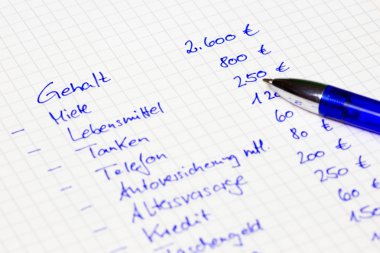 Gehalt 2.600 €
- Miete 800 €
- Lebensmittel 250 €
- Tanken
- Telefon 60
- Autoversicherung mtl. 80 €
- Altersvorsorge 200 €
- Kredit 250 €
60